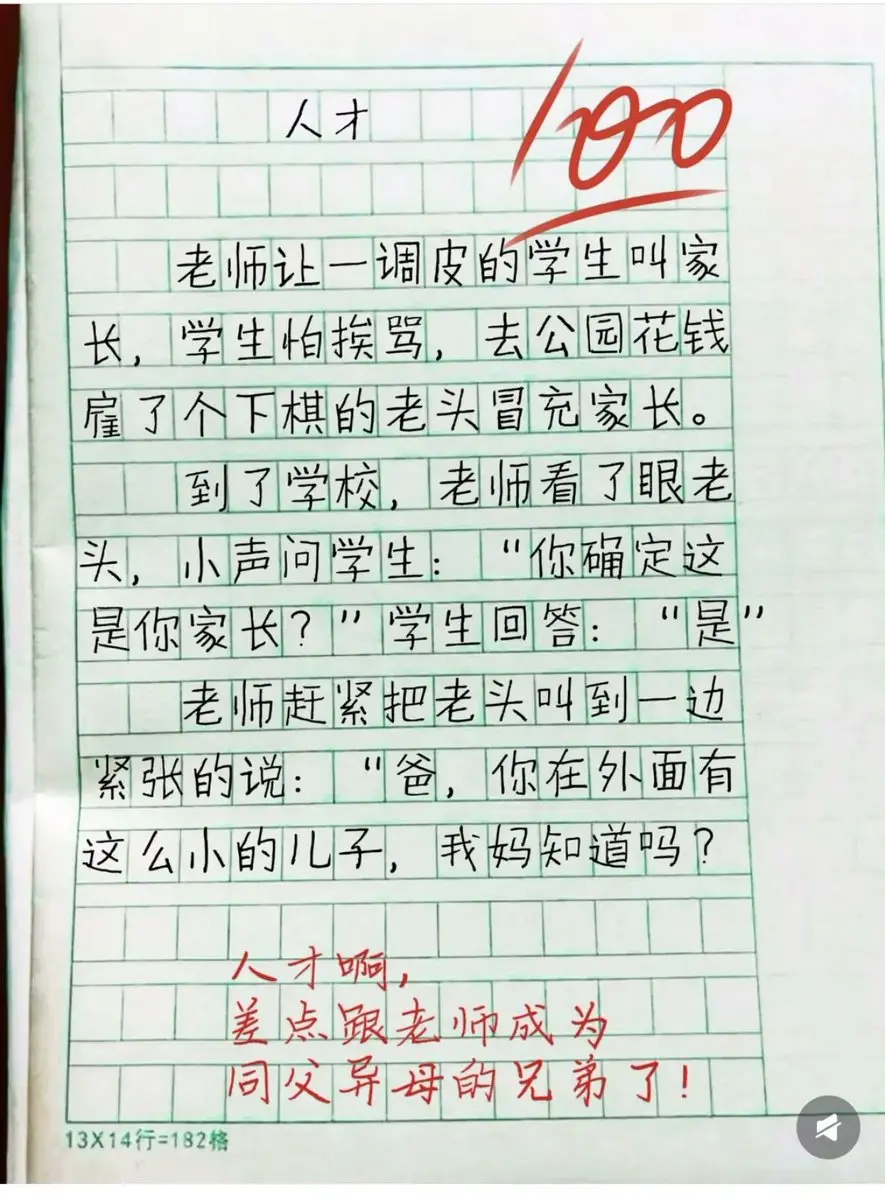 人才
100
老师让一调皮的学生叫家
长，学生怕挨骂，去公园花钱
雇了个下棋的老头冒充家长。
到了学校，老师看了眼老
头，小声问学生：“你确定这
是你家长？”学生回答：“是”
老师赶紧把老头叫到一边
紧张的说：“爸，你在外面有
这么小的儿子，我妈知道吗？
人才啊，
差点跟老师成为
同父异母的兄弟了！
13X14行=182格